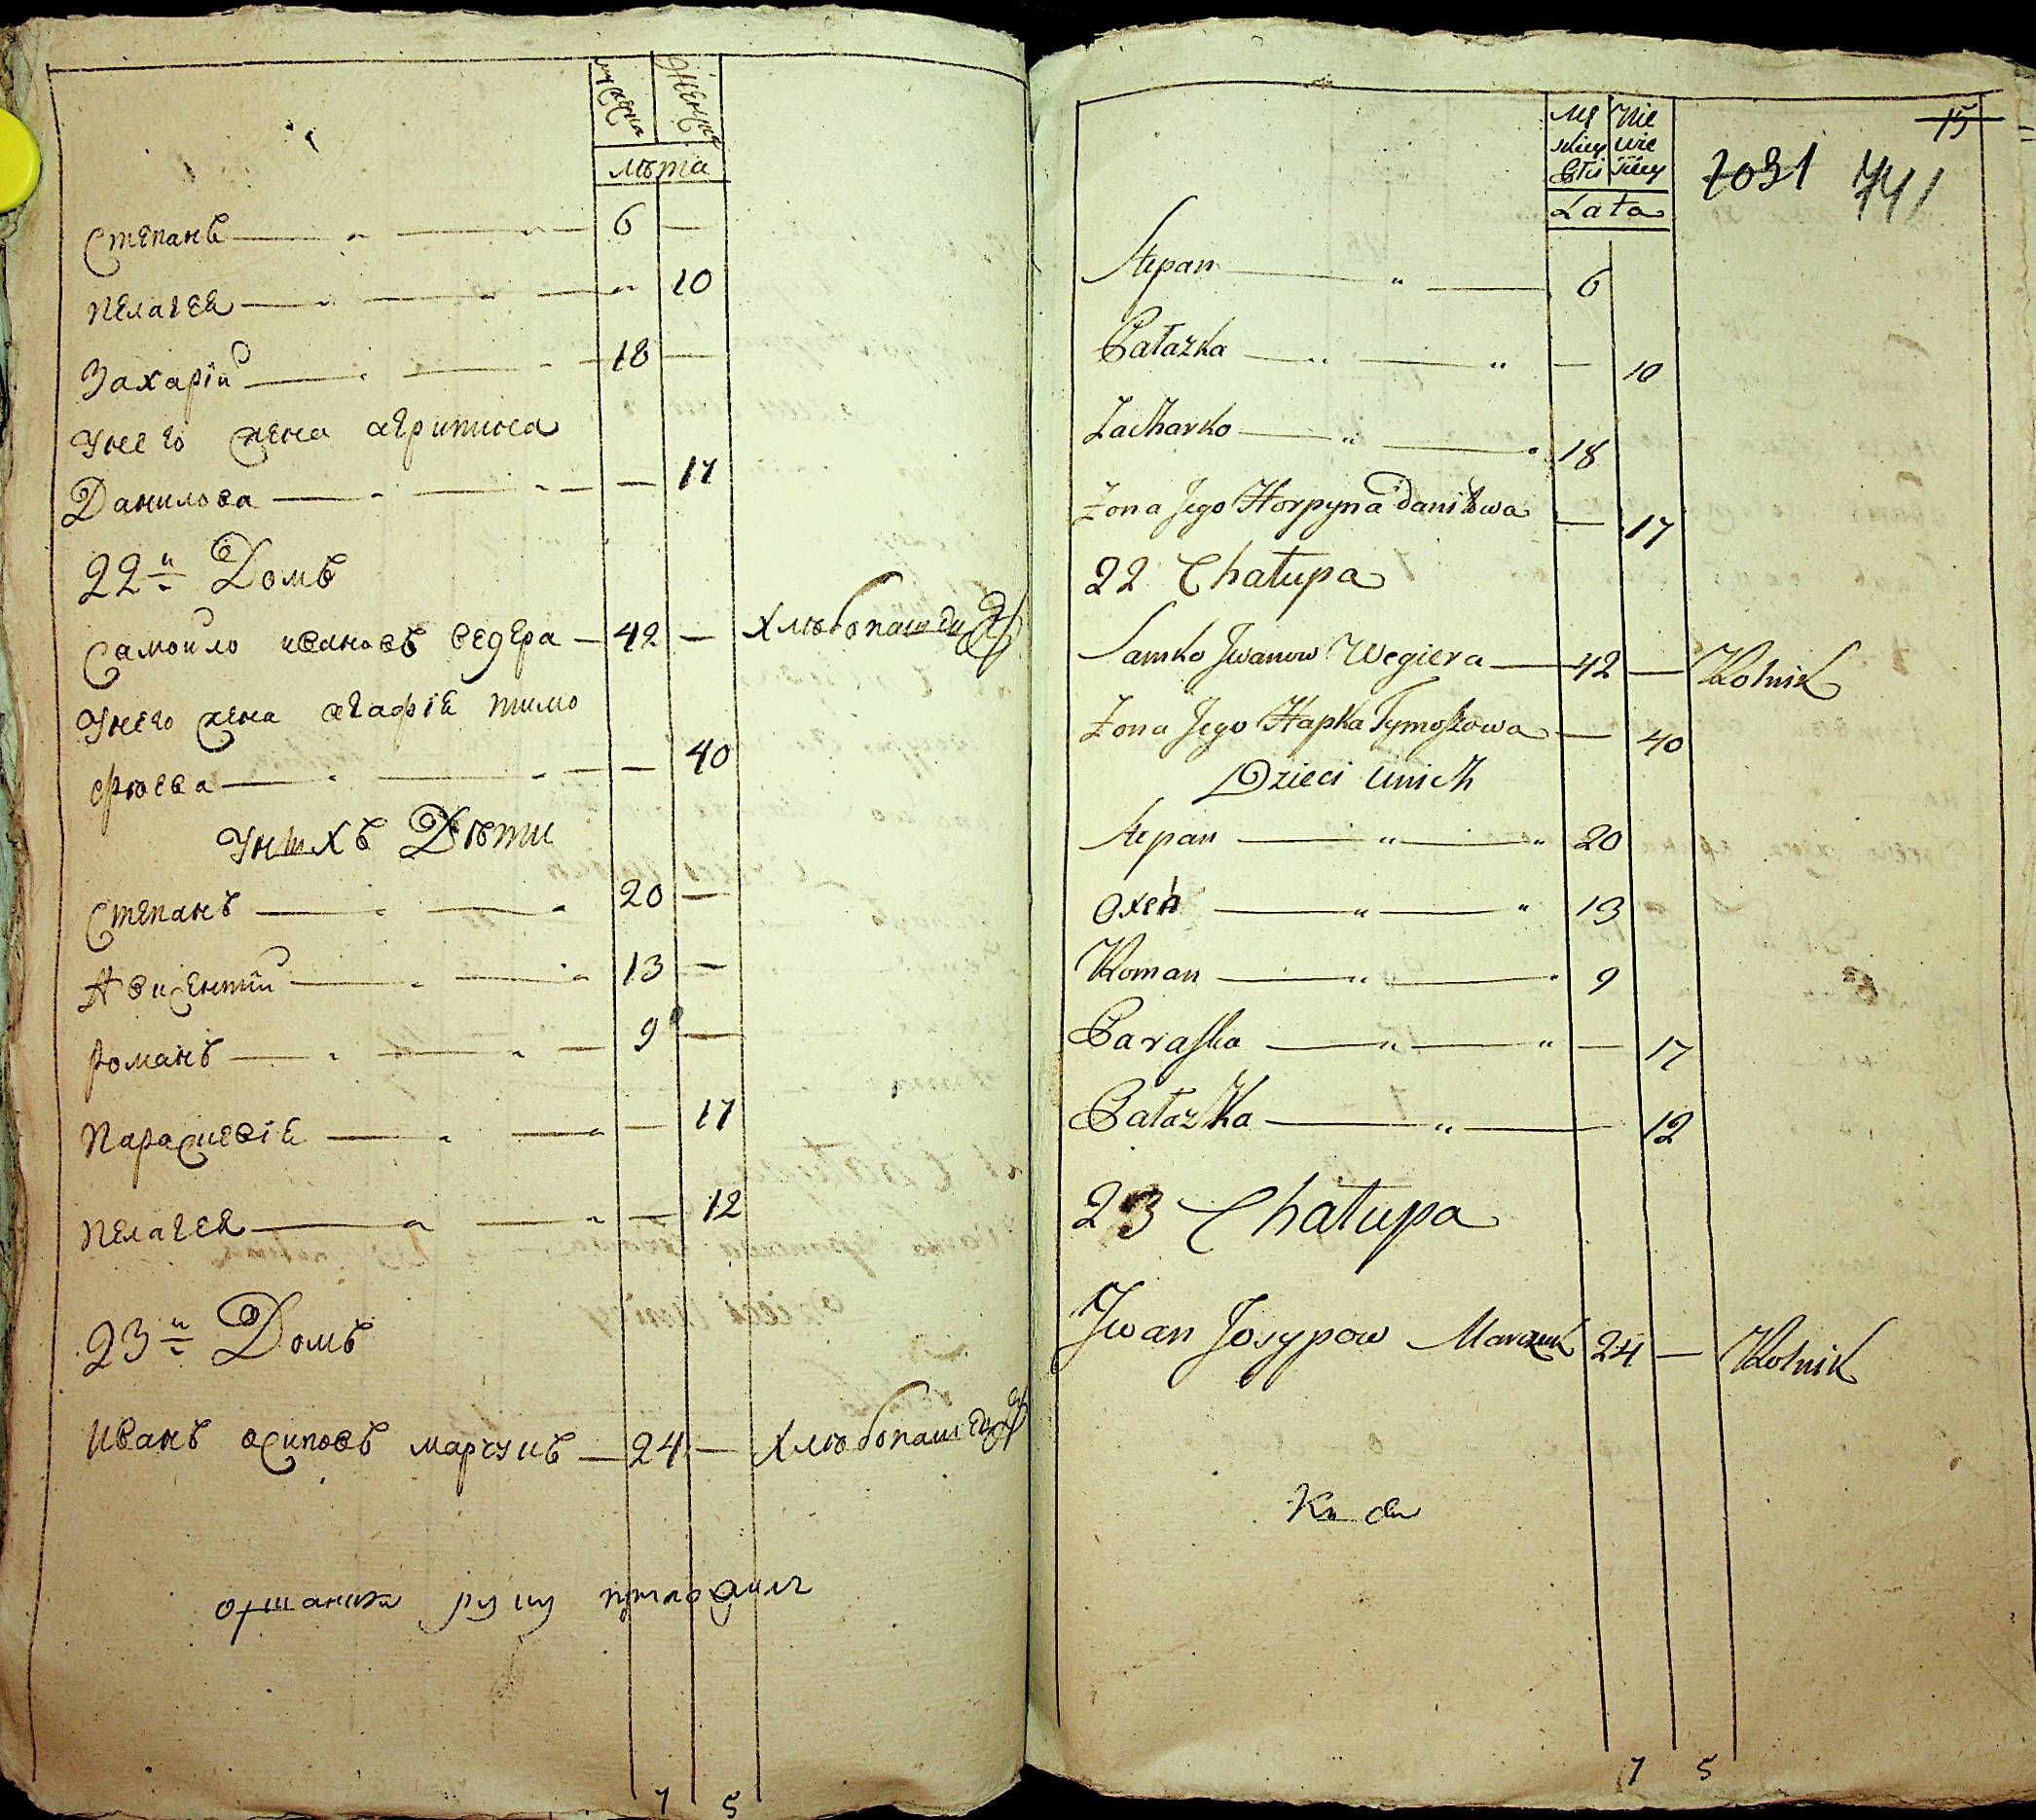 мужска женска
лѣта
Степанъ — „ — 6 —
Пелагея — „ — „ 10
Захарій — „ — 18 —
Унего жена агрипина
Данилова — „ — — 17
22й Домъ
Самойло ивановъ ведера — 42 — хлѣбопашецъ
Унего жена агафія тимо
фѣева — „ — — 40
Унихъ Дѣти
Степанъ — „ — 20 —
Авксентий — „ — 13 —
Романъ — „ — 9 —
Параскевія — „ — 17
Пелагея — „ — 12
23й Домъ
Иванъ осиповъ марчукъ — 24 — хлѣбопашецъ
руку приложилъ
7 5
15
7031 741
Lata
Stepan — „ — 6
Pałazka — „ — „ — 10
Zacharko — „ — 18
Zona Jego Horpyna Daniłowa — 17
22 Chałupa
Samko Jwanow Wegiera — 42 — Rolnik
Zona Jego Hapka Tymoszowa — 40
Dzieci unich
Stepan — „ — „ 20
Oxeń — „ — „ 13
Roman — „ — „ 9
Paraska — „ — „ — 17
Pałazka — „ — 12
23 Chałupa
Jwan Josypow Marczuk 24 — Rolnik
7 5